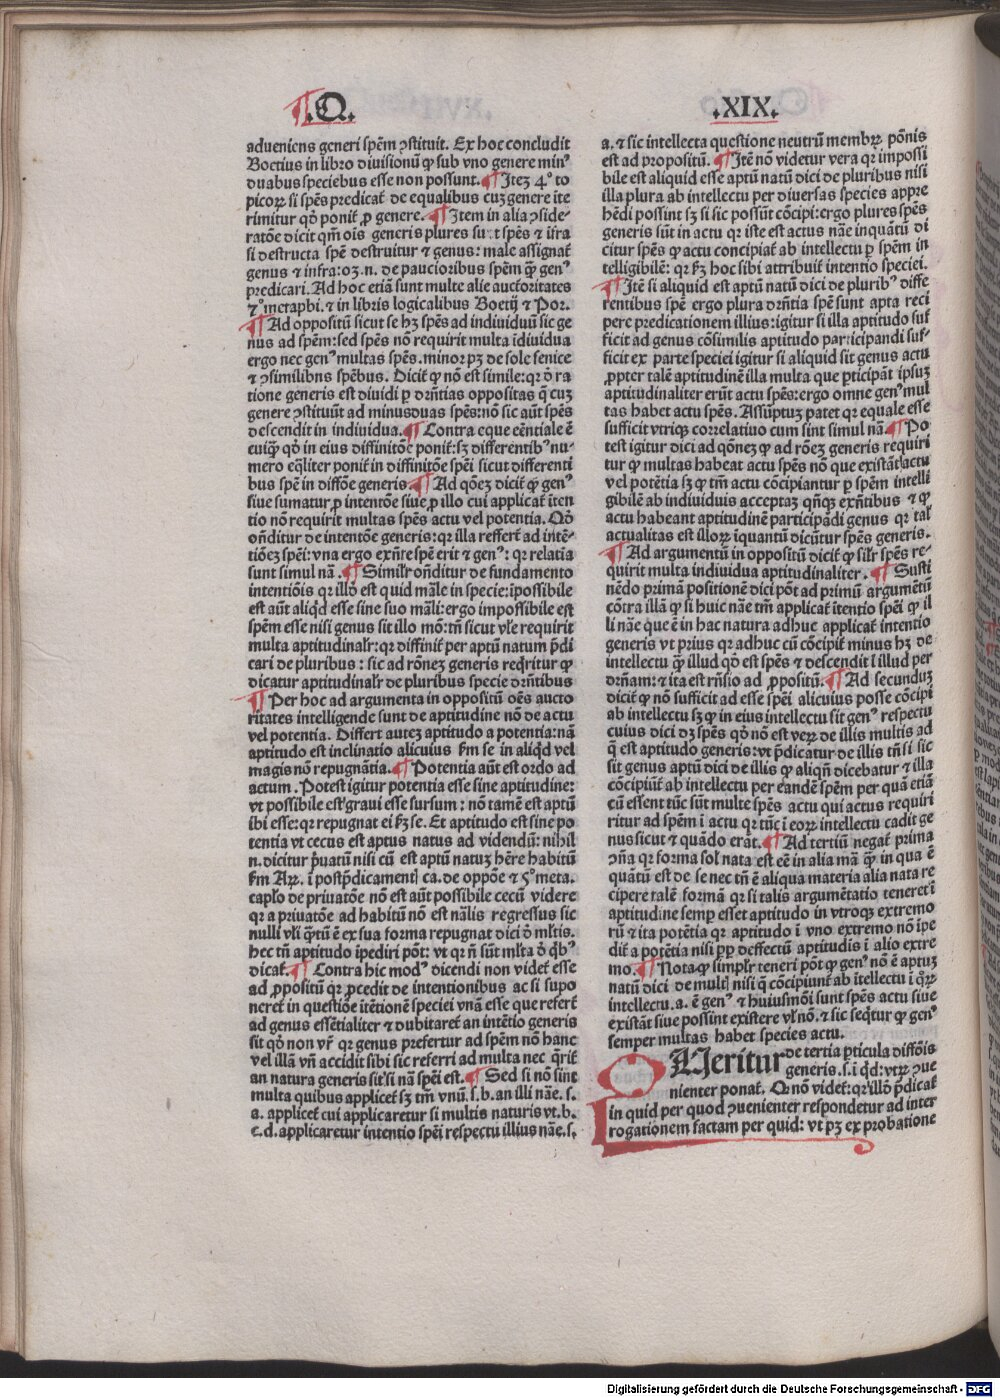 ¶.Q.
.XIX.
adueniens generi spēm ꝯstituit. Ex hoc concludit
Boetius in libro diuisionū ꝙ sub vno genere minꝰ
duabus speciebus esse non possunt. ¶ Itez 4º to
picoꝝ si spēs predicat̄ de equalibus cuz genere ite
rimitur qd̓ ponit̄ ꝓ genere. ¶ Item in alia ꝯside-
ratōe dicit qm̄ oīs generis plures sunt spēs ⁊ īfra
si destructa spē destruitur ⁊ genus: male assignat̄
genus ⁊ infra:oꝫ.n. de paucioribus spēm ꝙ̄ genꝰ
predicari. Ad hoc etiā sunt multe alie auctoritates
7º metaphi. ⁊ in libris logicalibus Boetij ⁊ Por.
¶ Ad oppositū sicut se hꝫ spēs ad indiuiduū sic ge
nus ad spēm: sed spēs nō requirit multa īdiuidua
ergo nec genꝰ multas spēs. minor pꝫ de sole fenice
⁊ ꝯsimilibus spēbus. Dicit̄ ꝙ nō est simile: qꝛ ō ra
tione generis est diuidi ꝑ dr̄ntias oppositas q̄ cuꝫ
genere ꝯstituūt ad minusduas spēs: nō sic aūt spēs
descendit in indiuidua. ¶ Contra eque eēntiale ē
cuiqꝫ qd̓ in eius diffinitōe ponit̄: sꝫ differentibꝰ nu-
mero eq̄liter ponit̄ in diffinitōe spēi sicut differenti
bus spē in diffōe generis. ¶ Ad q̄onez dicit̄ ꝙ genꝰ
siue sumatur ꝓ intentōe siue ꝓ illo cui applicat̄ iten
tio nō requirit multas spēs actu vel potentia. Qd̓
on̄ditur de intentōe generis: qꝛ illa reffert̄ ad intē-
tiōez spēi: vna ergo exn̄te spē erit ⁊ genꝰ: qꝛ relatia
sunt simul nā. ¶ Similr̄ on̄ditur de fundamento
intentiōis qꝛ illd̓ est quid māle in specie: īpossibile
est aūt aliqd̓ esse sine suo māli: ergo impossibile est
spēm esse nisi genus sit illo mō: tn̄ sicut vl̄e requirit
multa aptitudinalr̄: qꝛ diffinit̄ per aptū natum p̄di
cari de pluribus : sic ad rōnez generis reqritur ꝙ
dicatur aptitudinalr̄ de pluribus specie dr̄ntibus
¶ Per hoc ad argumenta in oppositū oēs aucto
ritates intelligende sunt de aptitudine nō de actu
vel potentia. Differt autez aptitudo a potentia: nā
aptitudo est inclinatio alicuius ẜm se in aliqd̓ vel
magis nō repugnātia. ¶ Potentia aūt est ordo ad
actum . Potest igitur potentia esse sine aptitudine:
vt possibile est graui esse sursum : nō tamē est aptū
ibi esse: qꝛ repugnat ei ẜm se. Et aptitudo est sine po
tentia vt cecus est aptus natus ad videndū: nihil
.n. dicitur p̄uatū nisi cū est aptū natuꝫ hēre habitū
ẜm Aꝝ. ī postp̄dicament̄ ca. de oppōe ⁊ 5º meta.
caplo de priuatōe nō est aūt possibile cecū videre
qꝛ a priuatōe ad habitū nō est nālis regressus sic
nulli vl̄i q̄tū ē ex sua forma repugnat dici ō ml̄tis.
hec tn̄ aptitudo īpediri pōt: vt qꝛ n̄ sūnt ml̄ta ō qb̄ꝰ
dicat̄. ¶ Contra hic modꝰ dicendi non videt̄ esse
ad ꝓpositū qꝛ ꝓcedit de intentionibus ac si supo
neret̄ in questiōe ītētionē speciei vnā esse que refert̄
ad genus essētialiter ⁊ dubitaret̄ an intētio generis
sit qd̓ non vr̄ qꝛ genus prefertur ad spēm nō hanc
vel illā vn̄ accidit sibi sic referri ad multa nec q̄rit̄
an natura generis sit si nā spēi est. ¶ Sed si nō sint
multa quibus applicet̄ sꝫ tm̄ vnū. s. b. an illi nāe. s.
a. applicet̄ cui applicaretur si multis naturis vt. b.
c. d. applicaretur intentio spēi respectu illius nāe. s.
a. ⁊ sic intellecta questione neutrū membrꝝ pōnis
est ad propositū. ¶ Itē nō videtur vera qꝛ impossi
bile est aliquid esse aptū natū dici de pluribus nisi
illa plura ab intellectu per diuersas species appre
hēdi possint sꝫ si sic possūt cōcipi: ergo plures spēs
generis sūnt in actu qꝛ iste est actus nāe inquātū di
citur spēs ꝙ actu concipiat̄ ab intellectu ꝑ spēm in
telligibilē: qꝛ ẜm hoc sibi attribuit̄ intentio speciei.
¶ Itē si aliquid est aptū natū dici de pluribꝰ diffe
rentibus spē ergo plura dr̄ntia spē sunt apta reci
pere predicationem illius: igitur si illa aptitudo suf
ficit ad genus cōsimilis aptitudo participandi suf-
ficit ex parte speciei igitur si aliquid sit genus actu
ꝓpter talē aptitudinē illa multa que ꝑticipāt ipsuꝫ
aptitudinaliter erūt actu spēs: ergo omne genꝰ mul
tas habet actu spēs. Assūptuꝫ patet qꝛ equale esse
sufficit vtriqꝫ correlatiuo cum sint simul nā. ¶ Po
test igitur dici ad q̄onez ꝙ ad rōez generis requiri
tur ꝙ multas habeat actu spēs nō que existāt actu
vel potētia sꝫ ꝙ tm̄ actu cōcipiantur ꝑ spēm intelli
gibilē ab indiuiduis acceptaꝫ qn̄qꝫ exn̄tibus ⁊ ꝙ
actu habeant aptitudinē participādi genus qꝛ tal̄
actualitas est illoꝝ iquantū dicūtur spēs generis.
¶ Ad argumentū in oppositū dicit̄ ꝙ silr̄ spēs re-
quirit multa indiuidua aptitudinaliter. ¶ Susti
nēdo primā positionē dici pōt ad primū argumētū
cōtra illā ꝙ si huic nāe tm̄ applicat̄ ītentio spēi ꝙ il
li nāe que ē in hac natura adhuc applicat̄ intentio
generis vt prius qꝛ adhuc cū cōcipit̄ minus hꝫ de
intellectu ꝙ̄ illud qd̓ est spēs ⁊ descendit ī illud per
dr̄nam: ⁊ ita est rn̄sio ad ꝓpositū. ¶ Ad secunduꝫ
dicit̄ ꝙ nō sufficit ad esse spēi alicuius posse cōcipi
ab intellectu sꝫ ꝙ in eius intellectu sit genꝰ respectu
cuius dici dꝫ spēs qd̓ nō est veꝝ de illis multis ad
q̄ est aptitudo generis: vt p̄dicatur de illis tn̄ si sic
sit genus aptū dici de illis ꝙ aliqn̄ dicebatur ⁊ illa
cōcipiūt̄ ab intellectu per eandē spēm per quā etiā
cū essent tūc sūt multe spēs actu qui actus requiri
ritur ad spēm ī actu qꝛ tūc ī eoꝝ intellectu cadit ge
nus sicut ⁊ quādo erāt. ¶ Ad tertiū negat̄ prima
ꝯn̄a qꝛ forma sol̄ nata est eē in alia mā ꝙ̄ in qua ē
quātū est de se nec tn̄ ē aliqua materia alia nata re
cipere talē formā qꝛ si talis argumētatio teneret ī
aptitudine semꝑ esset aptitudo in vtroqꝫ extremo
rū ⁊ ita potētia qꝛ aptitudo ī vno extremo nō īpe
dit̄ a potētia nisi ꝓp̄ deffectū aptitudis ī alio extre
mo. ¶ Nota ꝙ simplr̄ teneri pōt ꝙ genꝰ nō ē aptuꝫ
natū dici de mult̄ nisi q̄ cōcipiunt̄ ab ītellectu ī q̄ꝝ
intellectu. a. ē genꝰ ⁊ huiusmōi sunt spēs actu siue
existāt siue possint existere vl̄ nō. ⁊ sic seq̄tur ꝙ genꝰ
semper multas habet species actu.
QUeritur de tertia ꝑticula diffōis
generis. s. i qd̓: vtꝝ ꝯue
nienter ponat̄. Q nō videt̄: qꝛ illd̓ p̄dicat̄
in quid per quod ꝯuenienter respondetur ad inter
rogationem factam per quid: vt pꝫ ex probatione
Digitalisierung gefördert durch die Deutsche Forschungsgemeinschaft - DFG